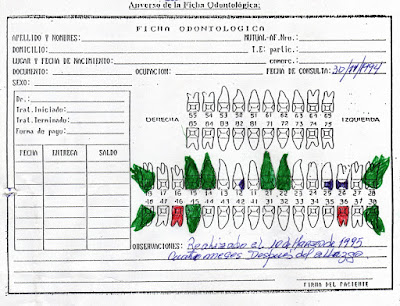 Anverso de la Ficha Odontológica:
FICHA ODONTOLOGICA
APELLIDO Y NOMBRES: MUTUAL-Af.Nro.:
DOMICILIO: T.E: partic.:
LUGAR Y FECHA DE NACIMIENTO: comerc.:
DOCUMENTO: OCUPACION: FECHA DE CONSULTA: 30/ /1994
SEXO:
Dr.:
Trat.Iniciado:
Trat.Terminado:
Forma de pago:
FECHA ENTREGA SALDO
55 54 53 52 51 61 62 63 64 65
DERECHA IZQUIERDA
85 84 83 82 81 71 72 73 74 75
18 17 16 15 14 13 12 11 21 22 23 24 25 26 27 28
48 47 46 45 44 43 42 41 31 32 33 34 35 36 37 38
OBSERVACIONES: Realizado el 10 de Marzo de 1995
Cuatro meses Después del allazgo.
FIRMA DEL PACIENTE